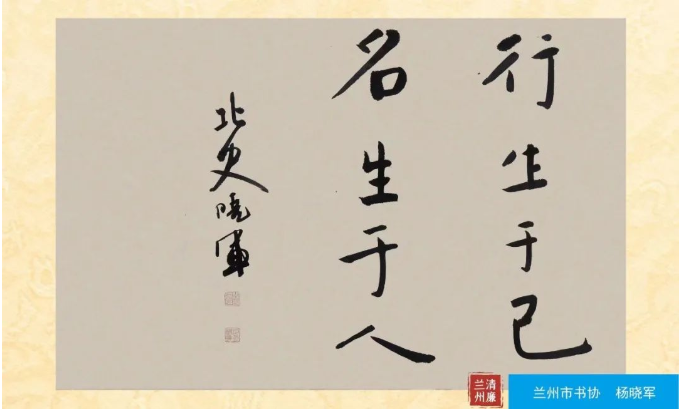 行生于己
名生于人
北史晓军
清廉
兰州
兰州市书协 杨晓军